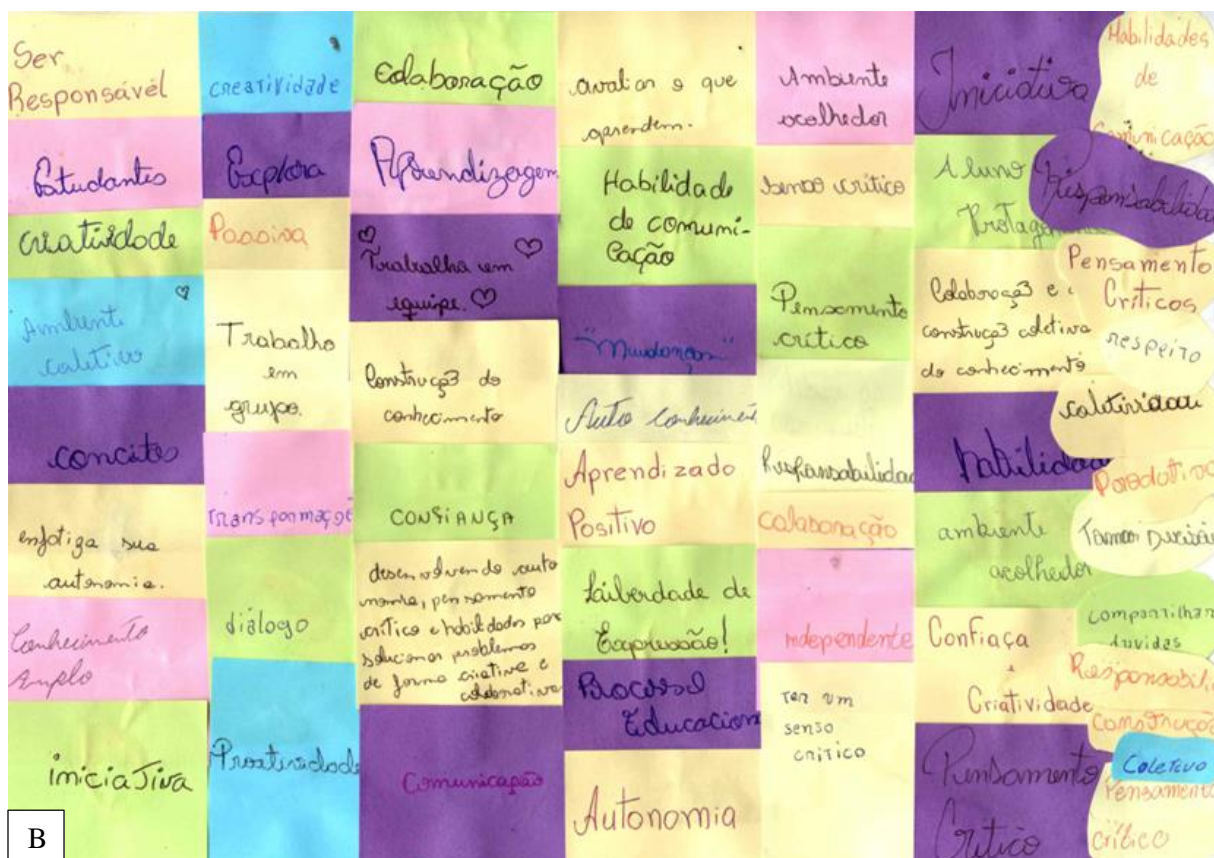 Ser
Responsável
Estudantes
criatividade
Ambiente
coletivo
concites
enfatiza sua
autonomia.
Conhecimento
Amplo
iniciativa
B
creatividade
Explora
Passiva
Trabalho
em
grupo.
Transformaçõe
diálogo
Proatividade
Colaboração
Aprendizagem
Trabalha em
equipe.
Construçã do
conhecimento
CONFIANÇA
desenvolvendo auto
nomia, pensamento
crítico e habilidades por
solucionar problemas
de forma criativa e
colaborativa
Comunicação
avaliar o que
aprendem.
Habilidade
de comuni-
cação
"Mudanças"
Auto conhecimento
Aprendizado
Positivo
Laiberdade de
Expressão!
Processo
Educacion
Autonomia
Ambiente
acolhedor
senso crítico
Pensamento
crítico
Responsabilidad
colaboração
independente
ter um
senso
crítico
Iniciativa
Aluno
Protagon
Colaboraçã e
construçã coletiva
do conhecimento
Habilidad
ambiente
acolhedor
Confiaça
e
Criatividade
Pensamento
Crítico
Habilidades
de
Comunicação
Responsabilida
Pensamento
Críticos
respeito
coletividade
Produtivo
Tomar Decisão
compartilhar
duvidas
Responsabili
construção
Coletivo
Pensamento
crítico